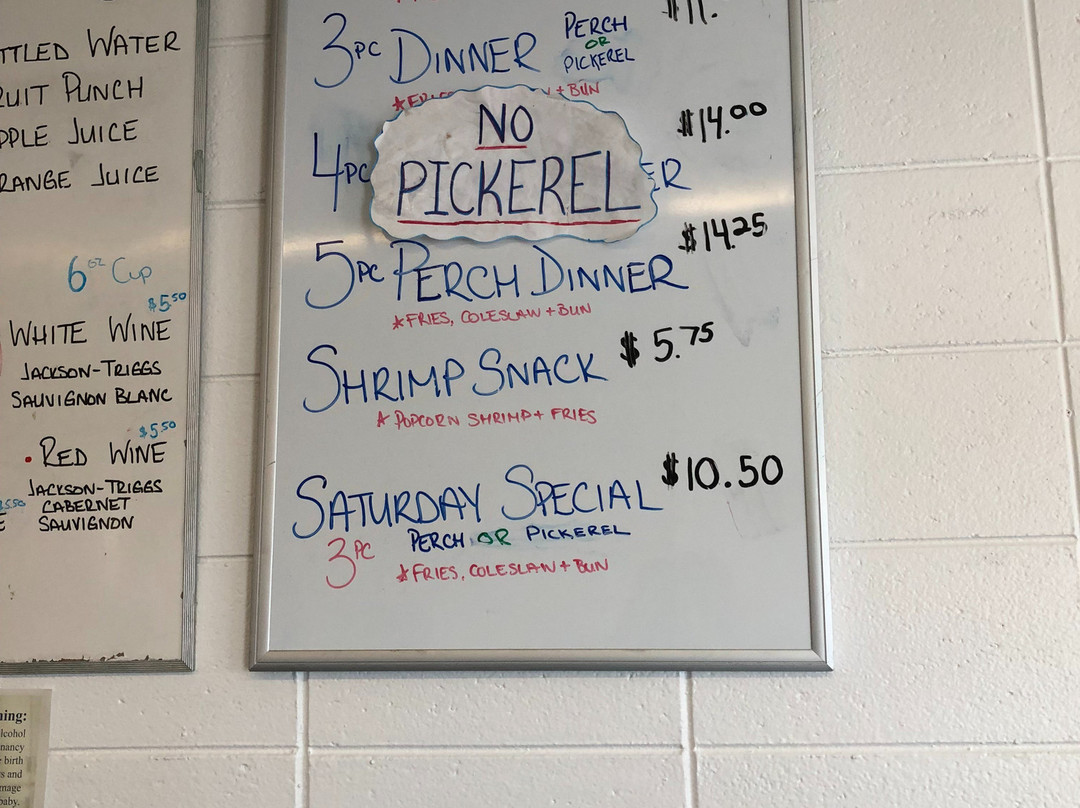 WATER
PUNCH
JUICE
JUICE
6 oz Cup
$5.50
WHITE WINE
JACKSON-TRIGGS
SAUVIGNON BLANC
$5.50
• RED WINE
JACKSON-TRIGGS
CABERNET
SAUVIGNON
$11.
3PC DINNER PERCH OR PICKEREL
+ BUN
NO
PICKEREL
4PC $14.00
5PC PERCH DINNER $14.25
*FRIES, COLESLAW + BUN
SHRIMP SNACK $5.75
* POPCORN SHRIMP + FRIES
SATURDAY SPECIAL $10.50
3PC PERCH OR PICKEREL
*FRIES, COLESLAW + BUN
birth
and